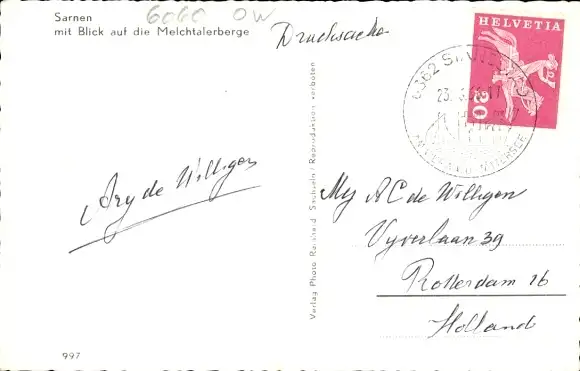 Sarnen
mit Blick auf die Melchtalerberge
6060 OW
Drucksache
HELVETIA
20
Ary de Willigen
Verlag Photo Reinhard Sachseln/Reproduktion verboten
My A C de Willigen
Vyverlaan 39
Rotterdam 16
Holland
997